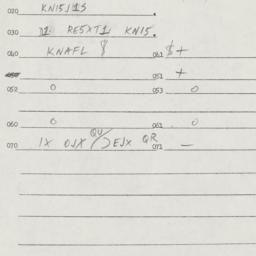 020 KN15J1S
030 D1 RE5XT1 KN15.
040 KNAFL $ 041 $+
050 051 +
052 0 053 0
060 0 061 0
070 1X OJX QU/ EJX QR 071 —